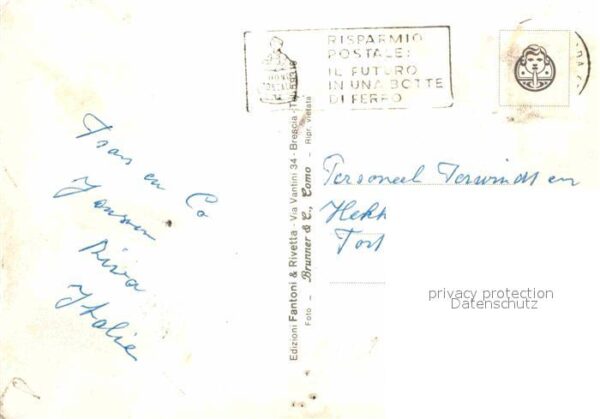 RISPARMIO
POSTALE:
IL FUTURO
IN UNA BOTTE
DI FERRO
en Co
Riva
Italie
Edizioni Fantoni & Rivetta - Via Vantini 34 - Brescia -
Foto - Brunner & C., Como - Ripr. vietata
Personeel Terwindt en
Hekh
privacy protection
Datenschutz